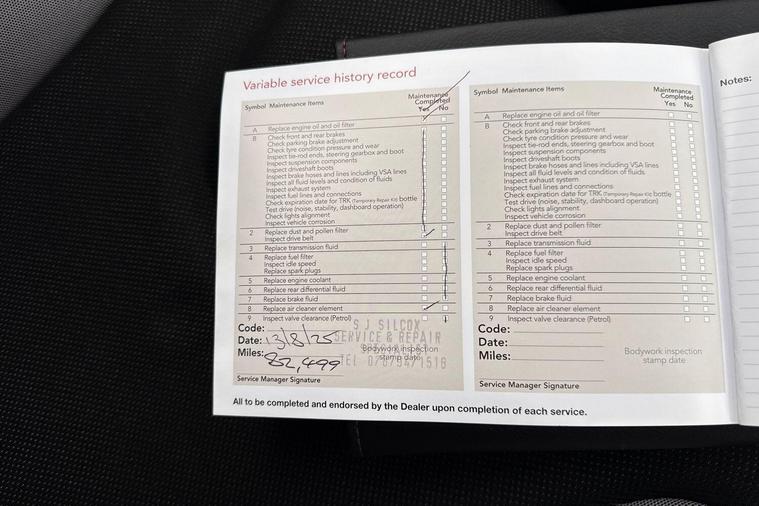 Variable service history record
Symbol Maintenance Items
Maintenance
Completed
Yes No
A Replace engine oil and oil filter
B Check front and rear brakes
Check parking brake adjustment
Check tyre condition pressure and wear
Inspect tie-rod ends, steering gearbox and boot
Inspect suspension components
Inspect driveshaft boots
Inspect brake hoses and lines including VSA lines
Inspect all fluid levels and condition of fluids
Inspect exhaust system
Inspect fuel lines and connections
Check expiration date for TRK (Temporary Repair Kit) bottle
Test drive (noise, stability, dashboard operation)
Check lights alignment
Inspect vehicle corrosion
2 Replace dust and pollen filter
Inspect drive belt
3 Replace transmission fluid
4 Replace fuel filter
Inspect idle speed
Replace spark plugs
5 Replace engine coolant
6 Replace rear differential fluid
7 Replace brake fluid
8 Replace air cleaner element
9 Inspect valve clearance (Petrol)
Code:
Date: 13/8/25
Miles: 82,499
S J SILCOX
SERVICE & REPAIR
Bodywork inspection
stamp date
Service Manager Signature
Symbol Maintenance Items
Maintenance
Completed
Yes No
A Replace engine oil and oil filter
B Check front and rear brakes
Check parking brake adjustment
Check tyre condition pressure and wear
Inspect tie-rod ends, steering gearbox and boot
Inspect suspension components
Inspect driveshaft boots
Inspect brake hoses and lines including VSA lines
Inspect all fluid levels and condition of fluids
Inspect exhaust system
Inspect fuel lines and connections
Check expiration date for TRK (Temporary Repair Kit) bottle
Test drive (noise, stability, dashboard operation)
Check lights alignment
Inspect vehicle corrosion
2 Replace dust and pollen filter
Inspect drive belt
3 Replace transmission fluid
4 Replace fuel filter
Inspect idle speed
Replace spark plugs
5 Replace engine coolant
6 Replace rear differential fluid
7 Replace brake fluid
8 Replace air cleaner element
9 Inspect valve clearance (Petrol)
Code:
Date:
Miles:
Bodywork inspection
stamp date
Service Manager Signature
All to be completed and endorsed by the Dealer upon completion of each service.
Notes: